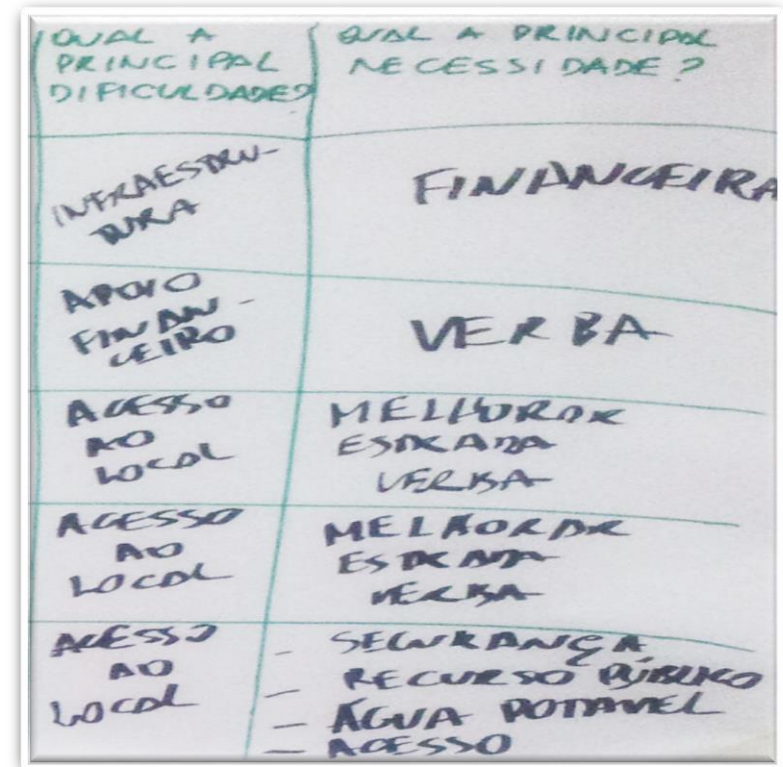 QUAL A
PRINCIPAL
DIFICULDADE?
QUAL A PRINCIPAL
NECESSIDADE?
INFRAESTRU-
TURA
FINANCEIRA
APOIO
FINAN-
CEIRO
VERBA
ACESSO
AO
LOCAL
MELHORAR
ESTRADA
VERBA
ACESSO
AO
LOCAL
MELHORAR
ESTRADA
VERBA
ACESSO
AO
LOCAL
- SEGURANÇA
- RECURSO PÚBLICO
- ÁGUA POTAVEL
- ACESSO